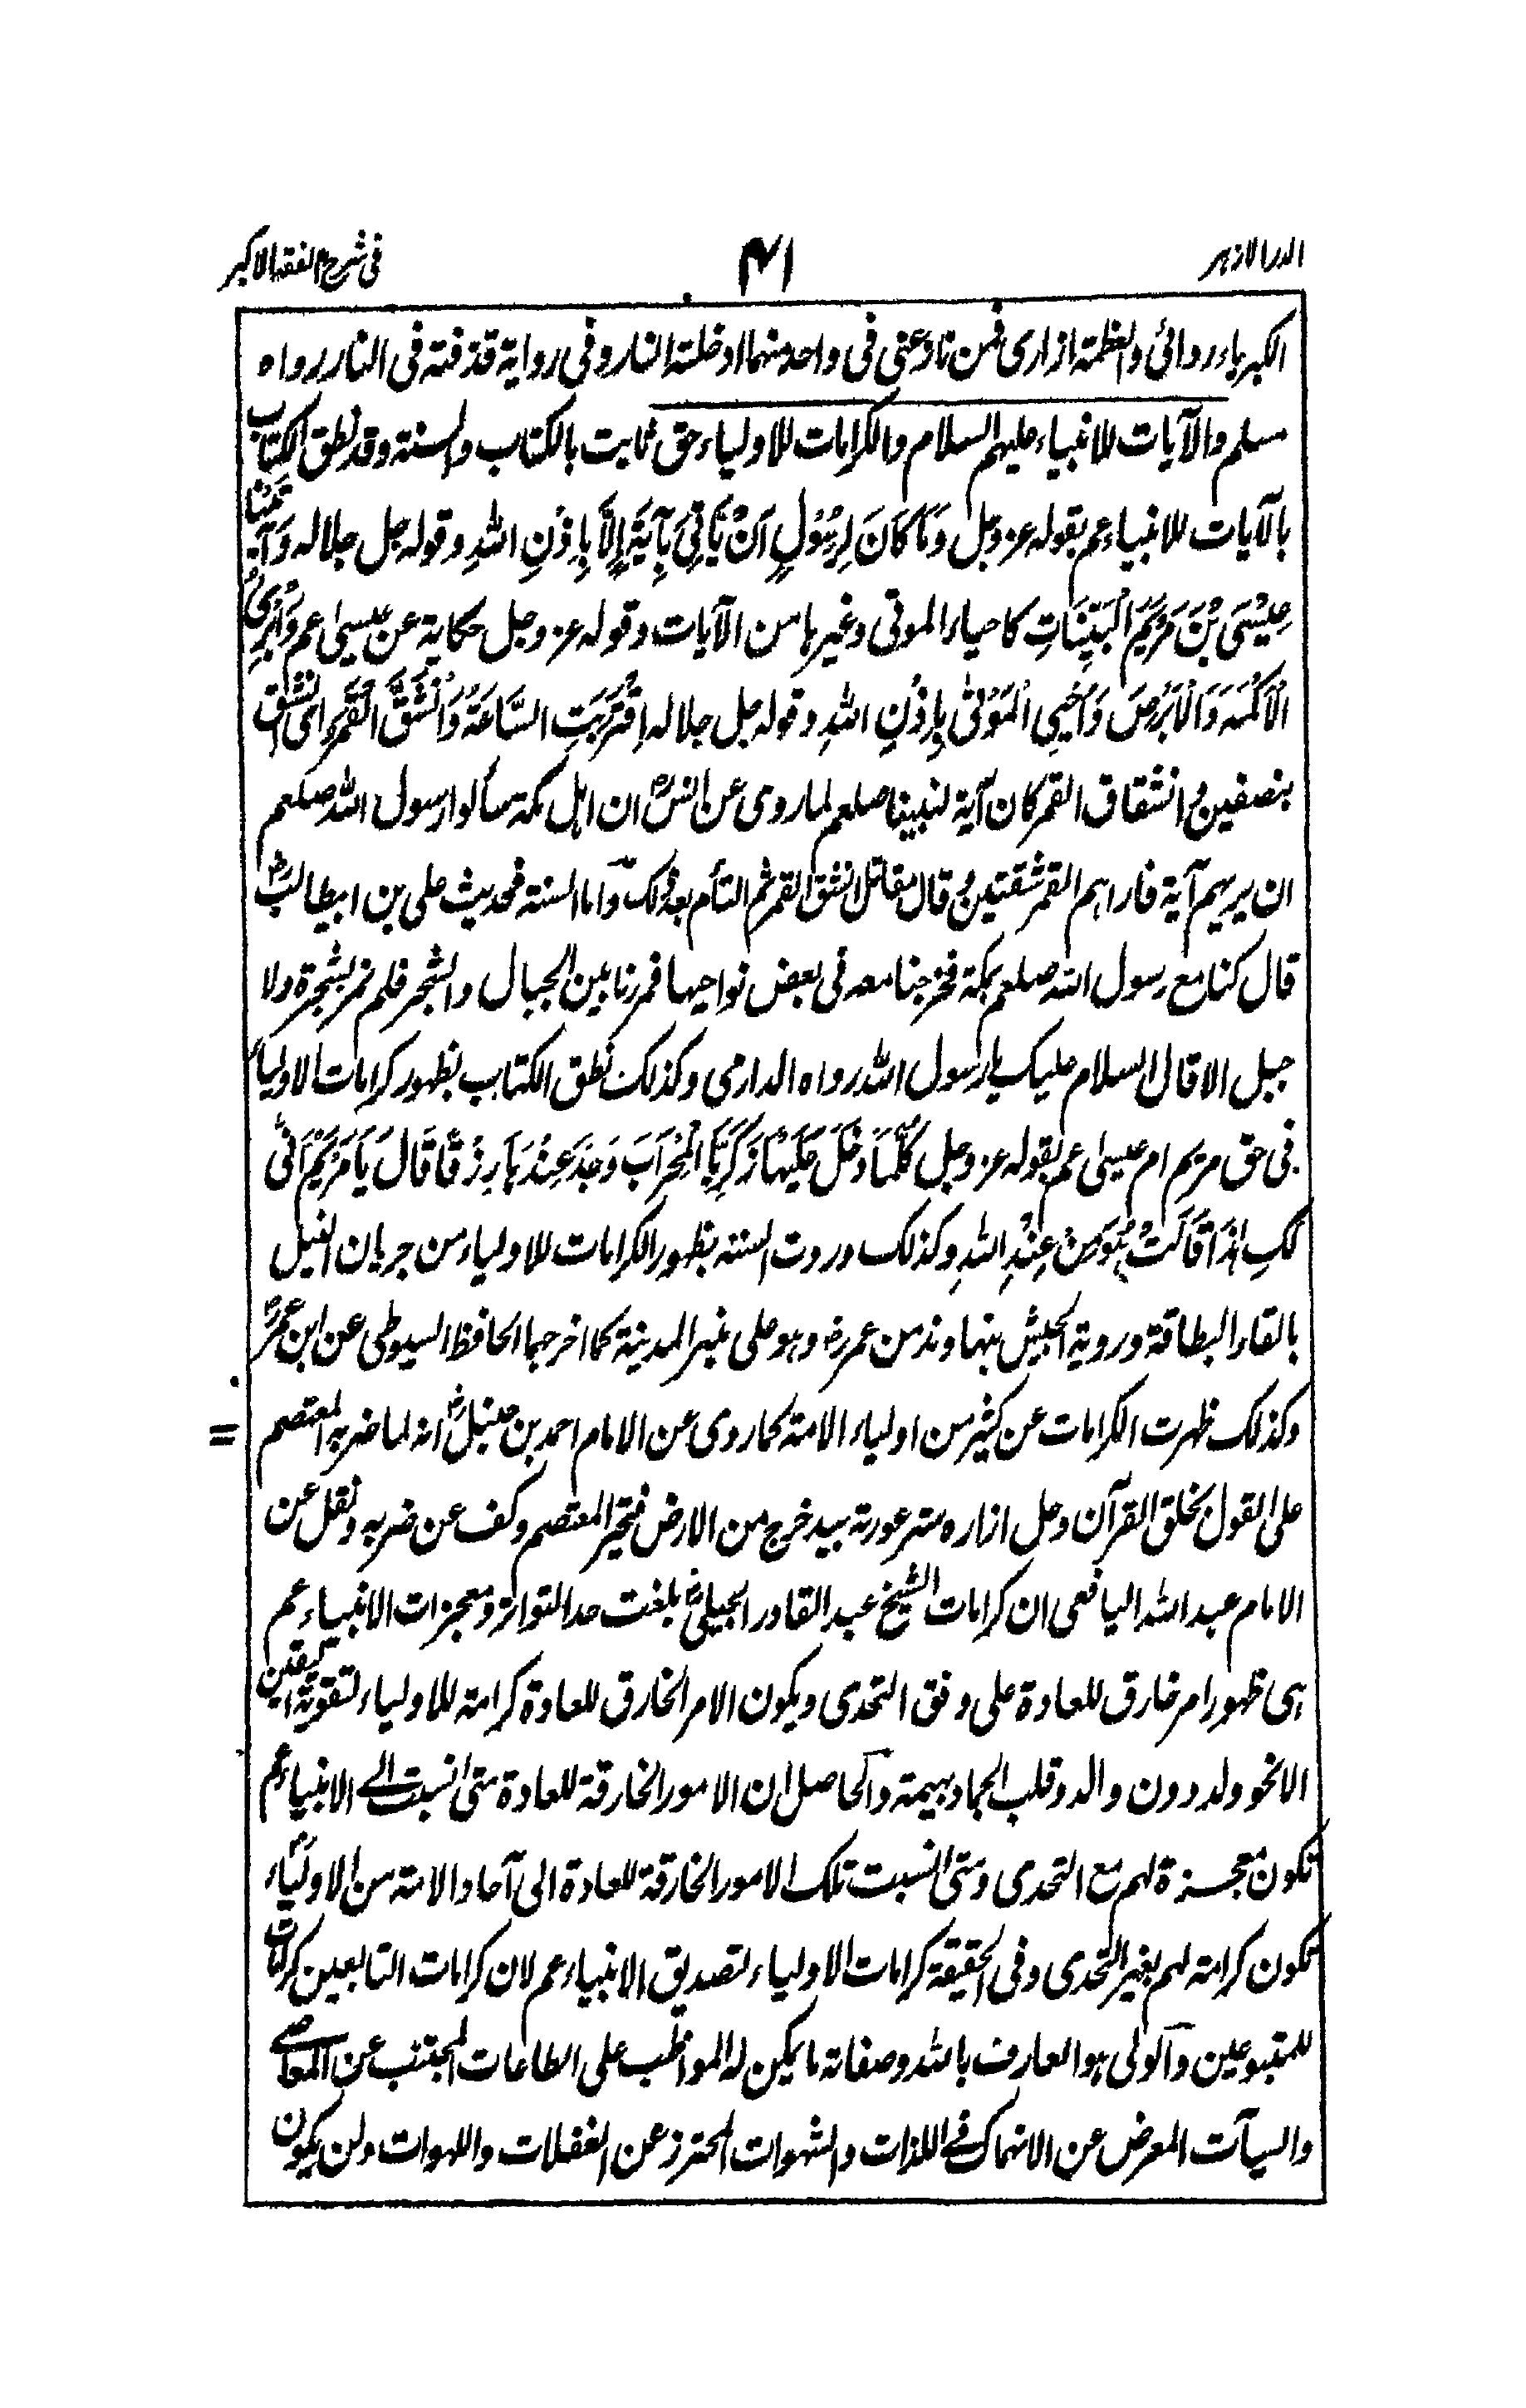 الدر الازهر ٤١ فی شرح الفقه الاکبر
الکبریاء ردائی والعظمة ازاری فمن نازعنی فی واحد منهما ادخلته النار وفی روایة قذفته فی النار رواه
مسلم والآیات للانبیاء علیهم السلام والکرامات للاولیاء حق ثابت بالکتاب والسنة وقد نطق الکتاب
بالآیات للانبیاء عم بقوله عز وجل وَمَا کَانَ لِرَسُوْلٍ اَنْ یَّاْتِیَ بِآیَةٍ اِلَّا بِاِذْنِ اللهِ وقوله جل جلاله وَآتَیْنَا
عِیْسَی بْنَ مَرْیَمَ الْبَیِّنَاتِ کاحیاء الموتی وغیرها من الآیات وقوله عز وجل حکایة عن عیسیٰ عم وَاُبْرِئُ
الْاَکْمَهَ وَالْاَبْرَصَ وَاُحْیِی الْمَوْتٰی بِاِذْنِ اللهِ وقوله جل جلاله اِقْتَرَبَتِ السَّاعَةُ وَانْشَقَّ الْقَمَرُ ای انشق
بنصفین وانشقاق القمر کان آیة لنبینا صلعم لما روی عن انسؓ ان اهل مکة سألوا رسول الله صلعم
ان یریهم آیة فاراهم القمر شقتین وقال مقاتل انشق القمر ثم التأم بعد ذلک واما السنة فحدیث علی بن ابیطالبؓ
قال کنا مع رسول الله صلعم بمکة فخرجنا معه فی بعض نواحیها فمررنا بین الجبال والشجر فلم نمر بشجرة ولا
جبل الا قال السلام علیک یا رسول الله رواه الدارمی وکذلک نطق الکتاب بظهور کرامات الاولیاء
فی حق مریم ام عیسیٰ عم بقوله عز وجل کُلَّمَا دَخَلَ عَلَیْهَا زَکَرِیَّا الْمِحْرَابَ وَجَدَ عِنْدَهَا رِزْقًا قَالَ یَا مَرْیَمُ اَنّٰی
لَکِ هٰذَا قَالَتْ هُوَ مِنْ عِنْدِ اللهِ وکذلک وردت السنة بظهور الکرامات للاولیاء من جریان النیل
بالقاء البطاقة ورویة الجیش بنهاوند من عمر رض وهو علی منبر المدینة کما اخرجها الحافظ السیوطی عن ابن عمرؓ
وکذلک ظهرت الکرامات عن کثیر من اولیاء الامة کما روی عن الامام احمد بن حنبلؒ انه لما ضربه المعتصم
علی القول بخلق القرآن وحل ازاره ستر عورته بید خرج من الارض فتحیر المعتصم وکف عن ضربه ونقل عن
الامام عبد الله الیافعی ان کرامات الشیخ عبد القادر الجیلیؒ بلغت حد التواتر ومعجزات الانبیاء عم
هی ظهور امر خارق للعادة علی وفق التحدی ویکون الامر الخارق للعادة کرامة للاولیاء لتقویة الیقین
الا نحو ولد دون والد وقلب الجماد بهیمة والحاصل ان الامور الخارقة للعادة متی انسبت الی الانبیاء عم
تکون معجزة لهم مع التحدی ومتی انسبت تلک الامور الخارقة للعادة الی آحاد الامة من الاولیاء
تکون کرامة لهم بغیر التحدی وفی الحقیقة کرامات الاولیاء لتصدیق الانبیاء عم لان کرامات التابعین کرامات
للمتبوعین والولی هو العارف بالله وصفاته ما یمکن له المواظب علی الطاعات المجتنب عن المعاصی
والسیآت المعرض عن الانهماک فی اللذات والشهوات المحترز عن الغفلات واللهوات ولن یکون